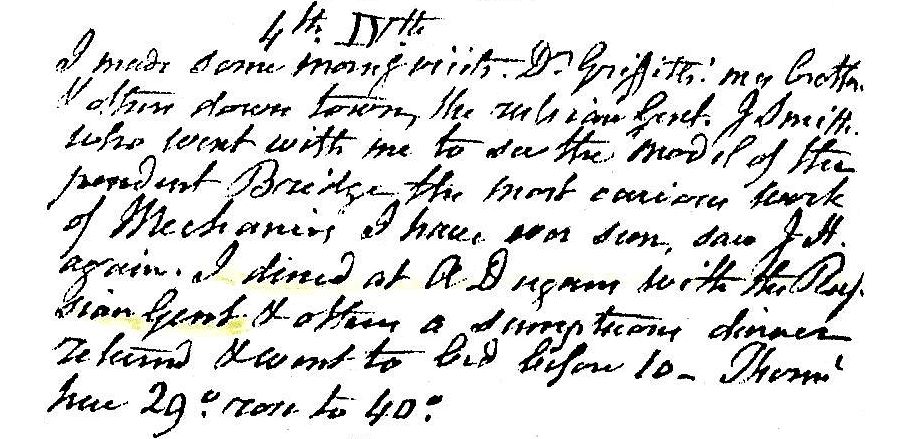 4th. IVth
I made some morng visits. Dr Griffith' my brother
& others down town, the russian Gent. J Smith
who went with me to see the model of the
pendent Bridge the most curious work
of Mechanics I have ever seen, saw J H.
again. I dined at A Dugans with the Rus-
sian Gent & others a sumptuous dinner
returnd & went to bed before 10 - Thermr
here 29° rose to 40°